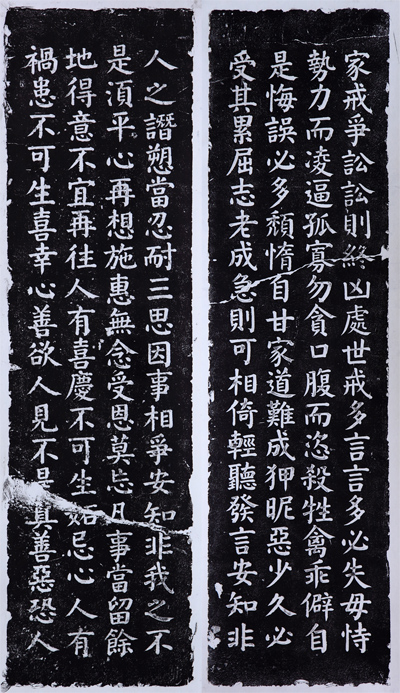 家戒爭訟訟則終凶處世戒多言言多必失毋恃
勢力而凌逼孤寡勿貪口腹而恣殺牲禽乖僻自
是悔誤必多頹惰自甘家道難成狎昵惡少久必
受其累屈志老成急則可相倚輕聽發言安知非
人之譖愬當忍耐三思因事相爭安知非我之不
是湏平心再想施惠無念受恩莫忘凡事當留餘
地得意不宜再往人有喜慶不可生妬忌心人有
禍患不可生喜幸心善欲人見不是真善惡恐人